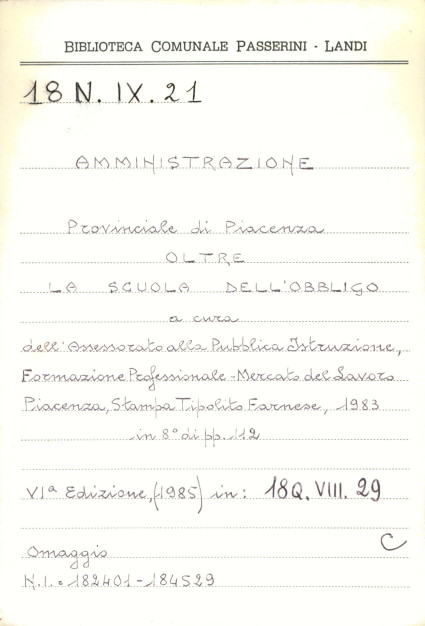 BIBLIOTECA COMUNALE PASSERINI - LANDI
18 N. IX. 21
AMMINISTRAZIONE
Provinciale di Piacenza
OLTRE
LA SCUOLA DELL'OBBLIGO
a cura
dell'Assessorato alla Pubblica Istruzione,
Formazione Professionale - Mercato del Lavoro
Piacenza, Stampa Tipolito Farnese, 1983
in 8° di pp. 112
VIª Edizione, (1985) in: 18Q. VIII. 29
C
Omaggio
N.I. = 182401 - 184529